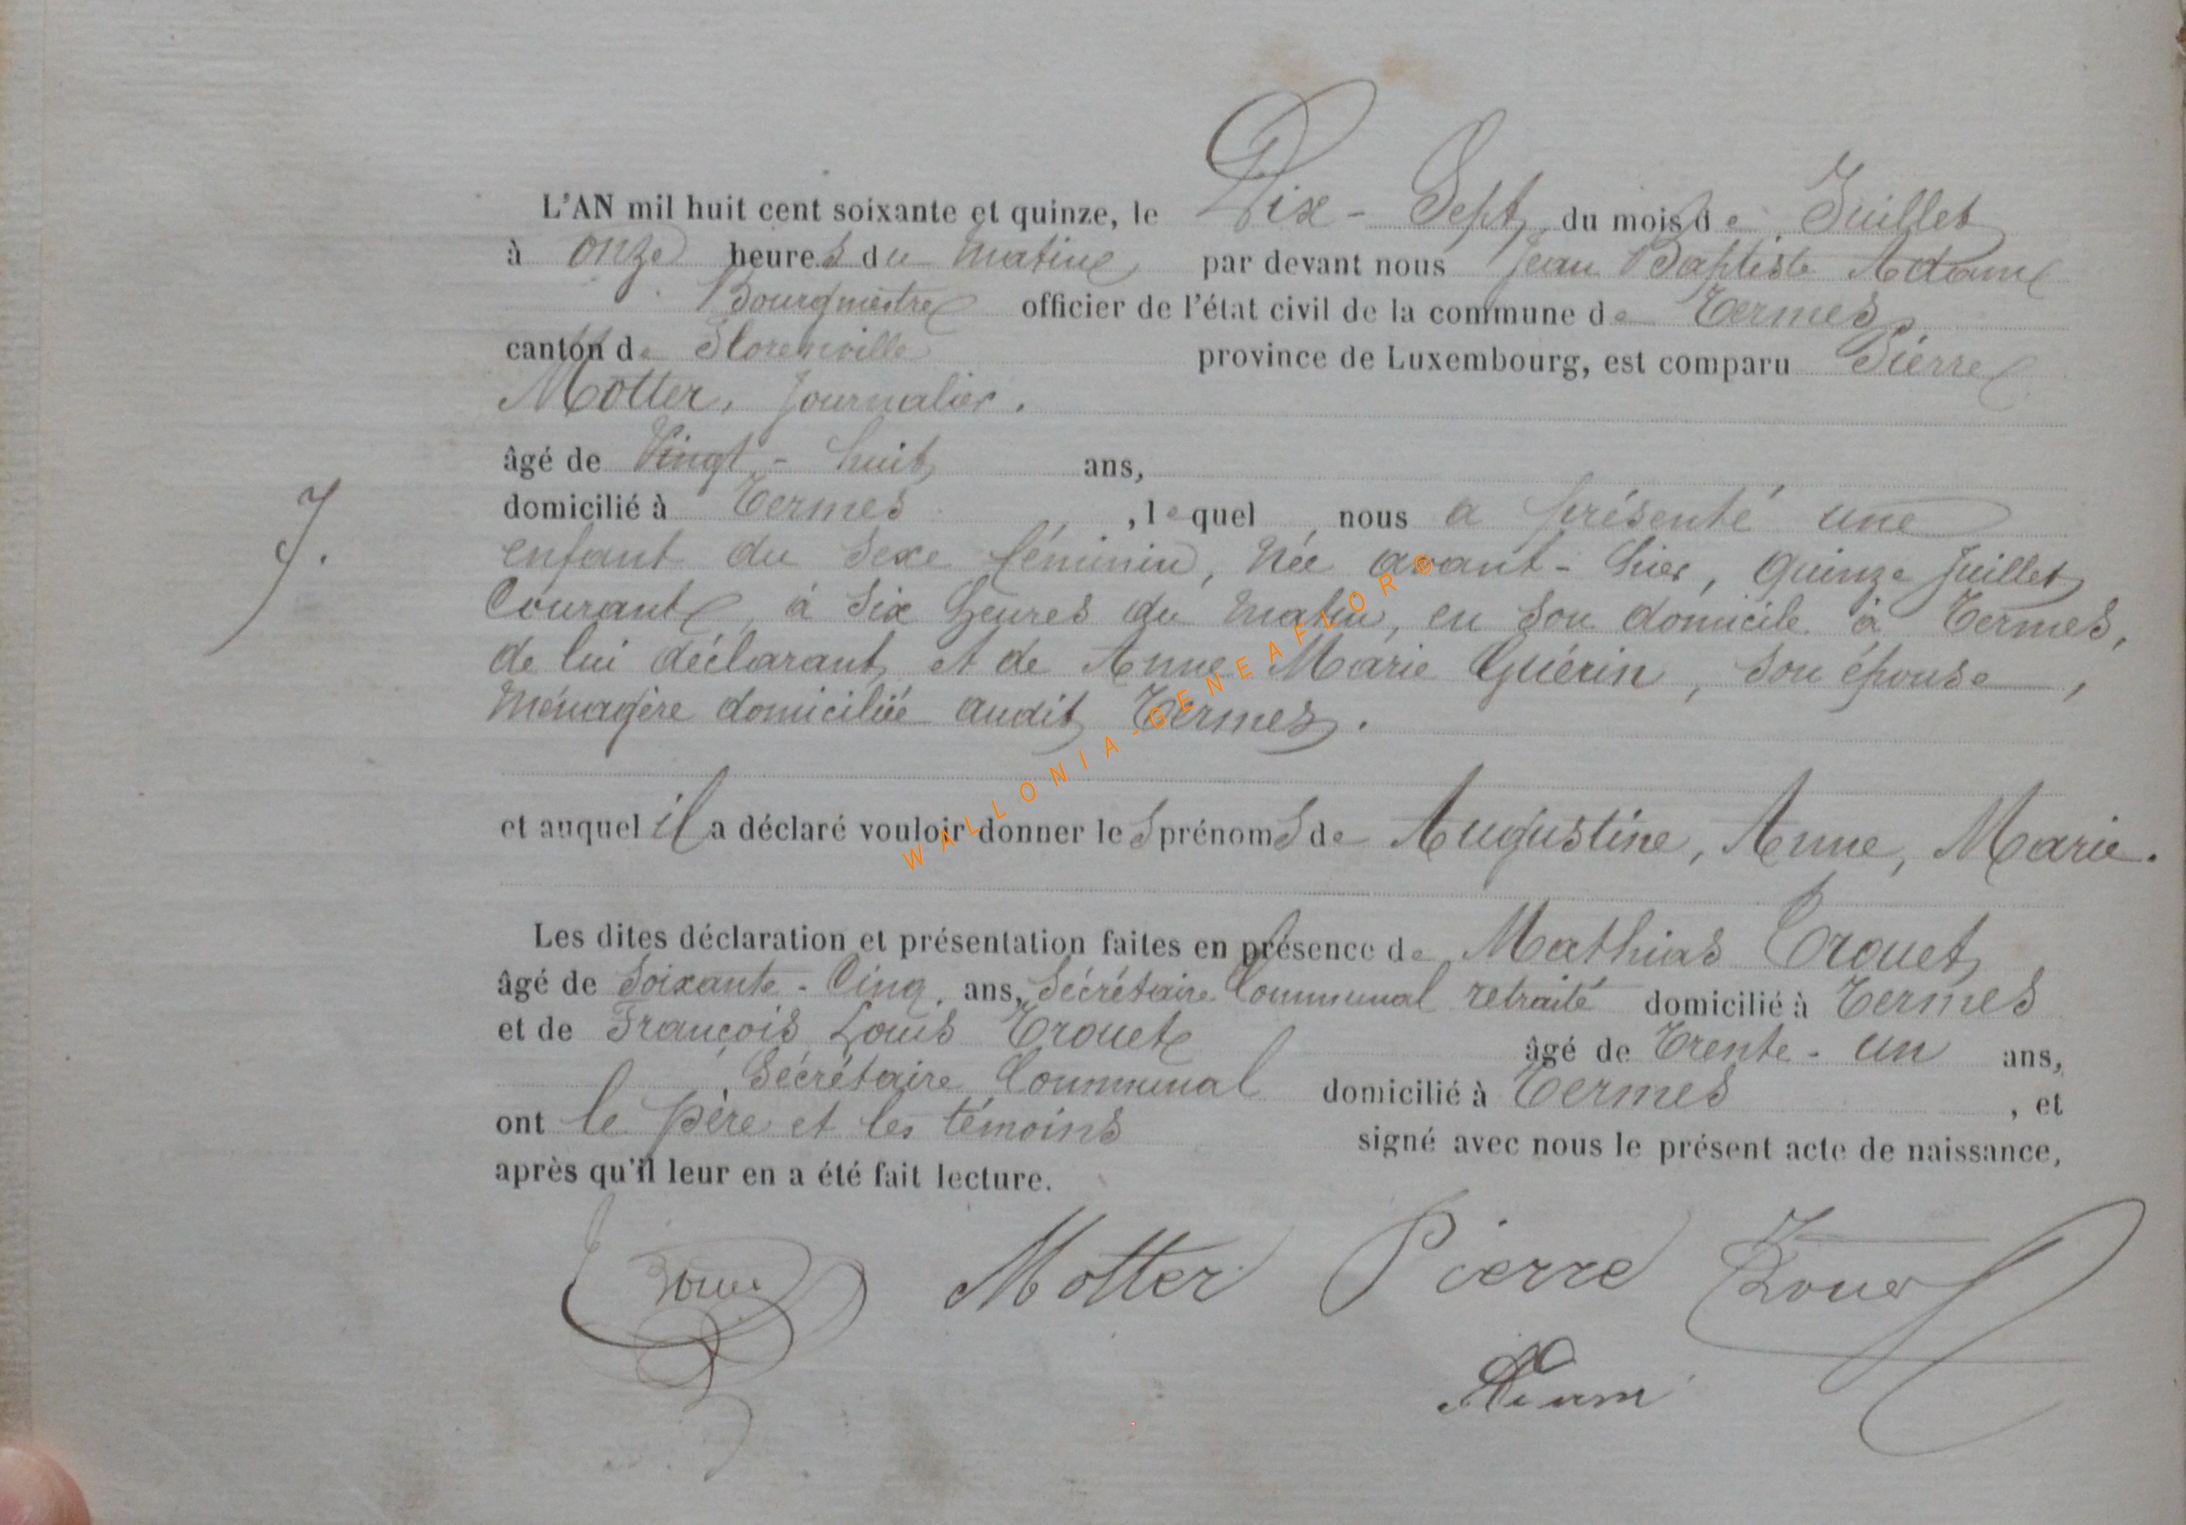 L'AN mil huit cent soixante et quinze, le Dix-Sept du mois de Juillet
à onze heures du matin par devant nous Jean Baptiste Adam
Bourgmestre officier de l'état civil de la commune de Termes
canton de Florenville province de Luxembourg, est comparu Pierre
Motter, journalier.
âgé de Vingt-huit ans,
domicilié à Termes , lequel nous a présenté une
7.
enfant du sexe féminin, née avant-hier, quinze Juillet
Courant, à six heures du matin, en son domicile à Termes,
de lui déclarant et de Anne Marie Guérin, son épouse,
Ménagère domiciliée audit Termes.
et auquel il a déclaré vouloir donner les prénoms de Augustine, Anne, Marie.
Les dites déclaration et présentation faites en présence de Mathias Trouet
âgé de Soixante-Cinq ans, Sécrétaire Communal retraité domicilié à Termes
et de François Louis Trouet âgé de Trente-un ans,
Sécrétaire Communal domicilié à Termes , et
ont le père et les témoins signé avec nous le présent acte de naissance,
après qu'il leur en a été fait lecture.
Motter Pierre Trouet
Adam
WALLONIA-GENEAFLOR©